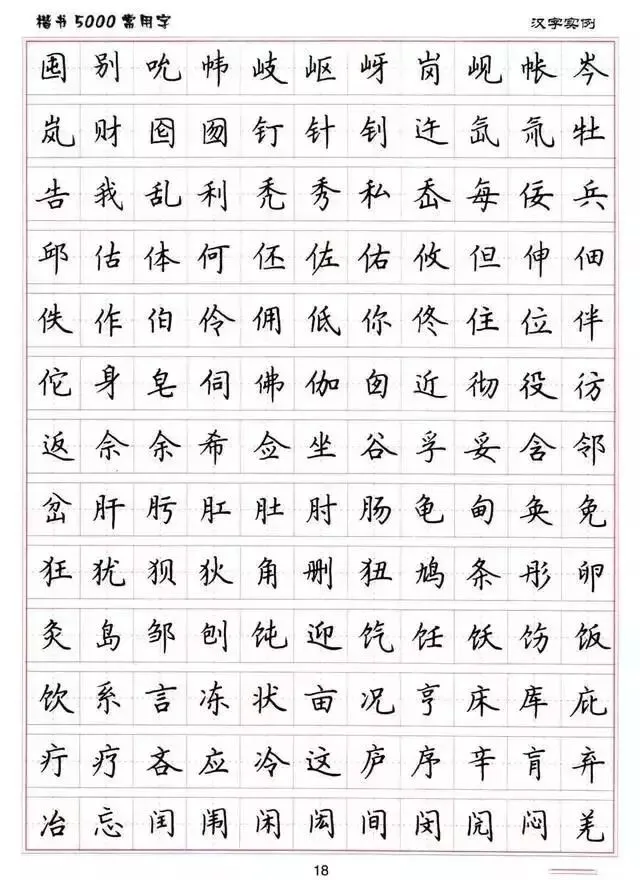 楷书5000常用字 汉字实例
囤别吮帏岐岖岈岗岘帐岑
岚财囵囫钉针钊迕氙氚牡
告我乱利秃秀私岙每佞兵
邱估体何伾佐佑攸但伸佃
佚作伯伶佣低你佟住位伴
佗身皂伺佛伽囱近彻役彷
返佘余希佥坐谷孚妥含邻
岔肝肟肛肚肘肠龟甸奂免
狂犹狈狄角删狃鸠条彤卵
灸岛邹刨饨迎饩饪饫饬饭
饮系言冻状亩况亨床库庇
疔疗吝应冷这庐序辛肓弃
冶忘闰闱闲闳间闵闶闷羌
18